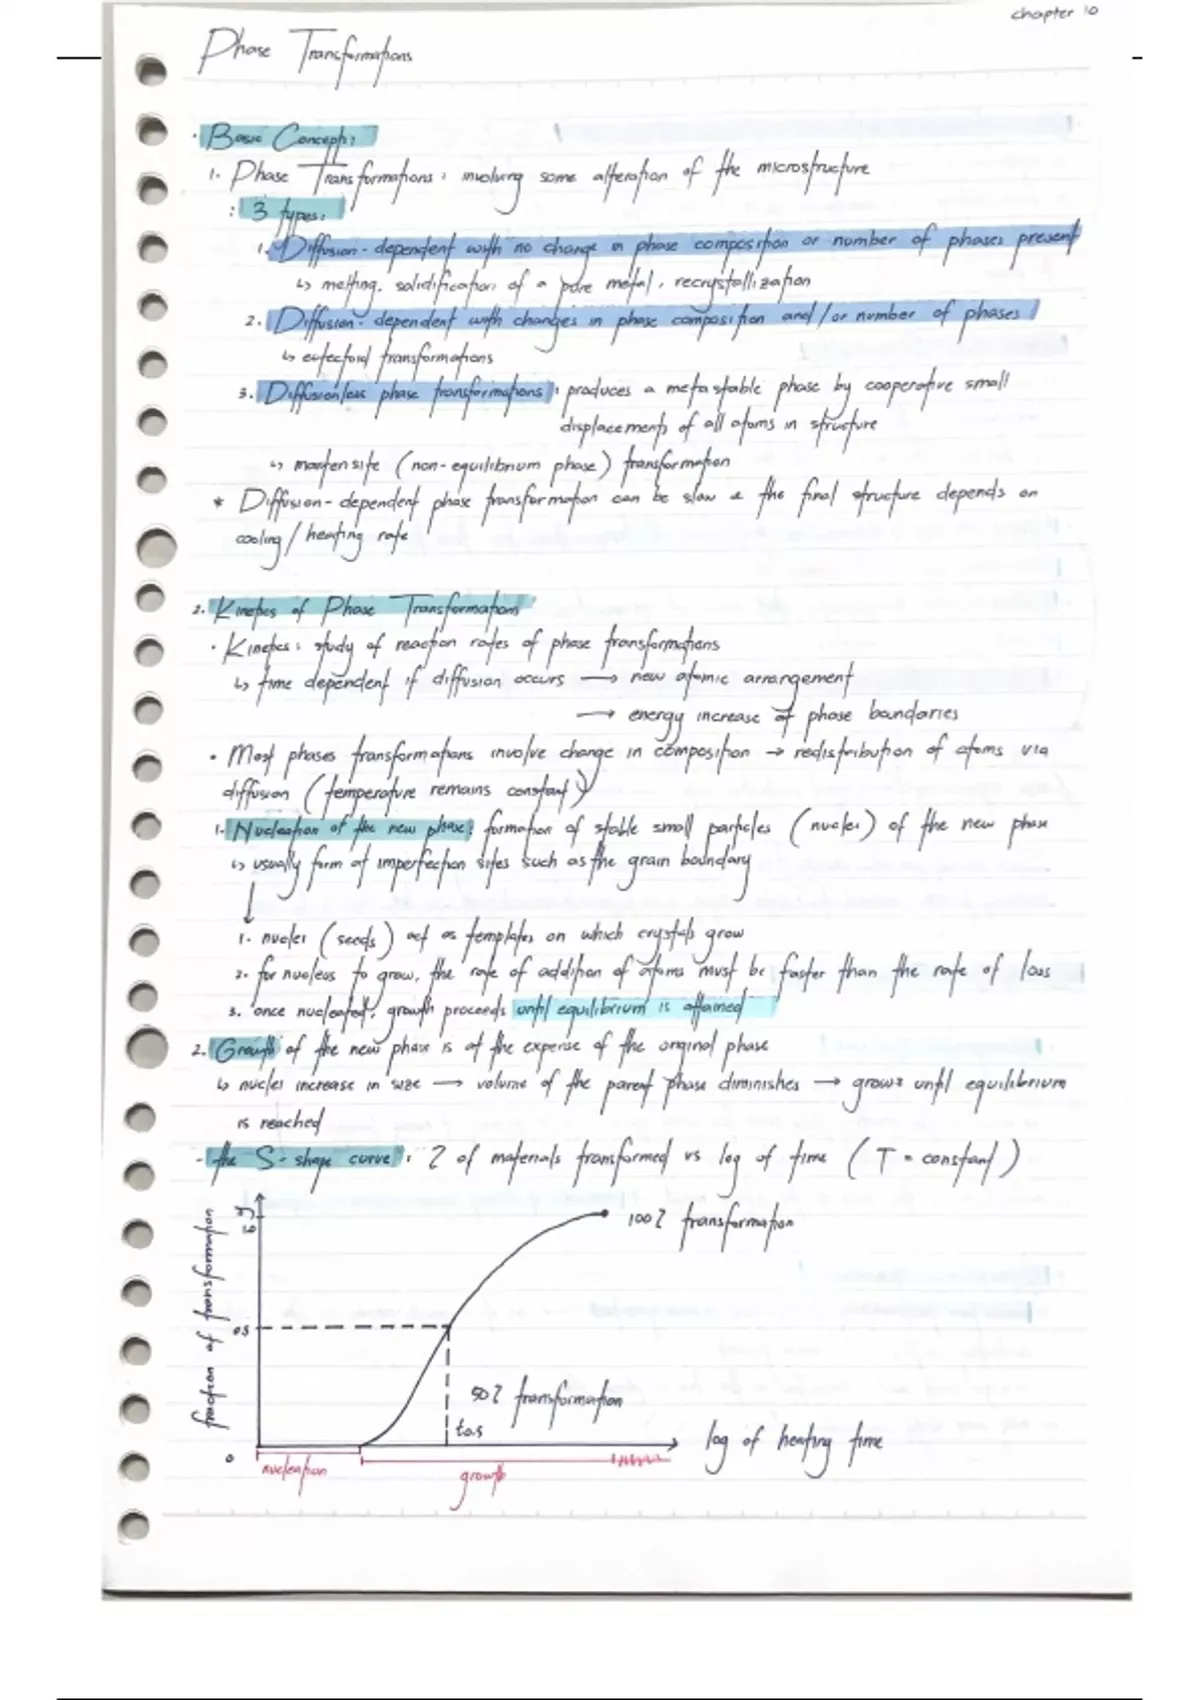 chapter 10
Phase Transformations
· Basic Concept:
1. Phase Transformations: involving some alteration of the microstructure
: 3 types:
1. Diffusion-dependent with no change in phase composition or number of phases present
↳ melting, solidification of a pure metal, recrystallization
2. Diffusion-dependent with changes in phase composition and/or number of phases
↳ eutectoid transformations
3. Diffusionless phase transformations: produces a metastable phase by cooperative small
displacements of all atoms in structure
↳ martensite (non-equilibrium phase) transformation
* Diffusion-dependent phase transformation can be slow & the final structure depends on
cooling/heating rate
2. Kinetics of Phase Transformations
· Kinetics: study of reaction rates of phase transformations
↳ time dependent if diffusion occurs → new atomic arrangement
→ energy increase at phase boundaries
· Most phases transformations involve change in composition → redistribution of atoms via
diffusion (temperature remains constant)
1. Nucleation of the new phase: formation of stable small particles (nuclei) of the new phase
↳ usually form at imperfection sites such as the grain boundary
↓
1. nuclei (seeds) act as templates on which crystals grow
2. for nucleus to grow, the rate of addition of atoms must be faster than the rate of loss
3. once nucleated, growth proceeds until equilibrium is attained
2. Growth of the new phase is at the expense of the original phase
↳ nuclei increase in size → volume of the parent phase diminishes → grows until equilibrium
is reached
- the S-shape curve: % of materials transformed vs log of time (T = constant)
fraction of transformation
y
1.0
100% transformation
0.5
50% transformation
t0.5
log of heating time
0
nucleation
growth